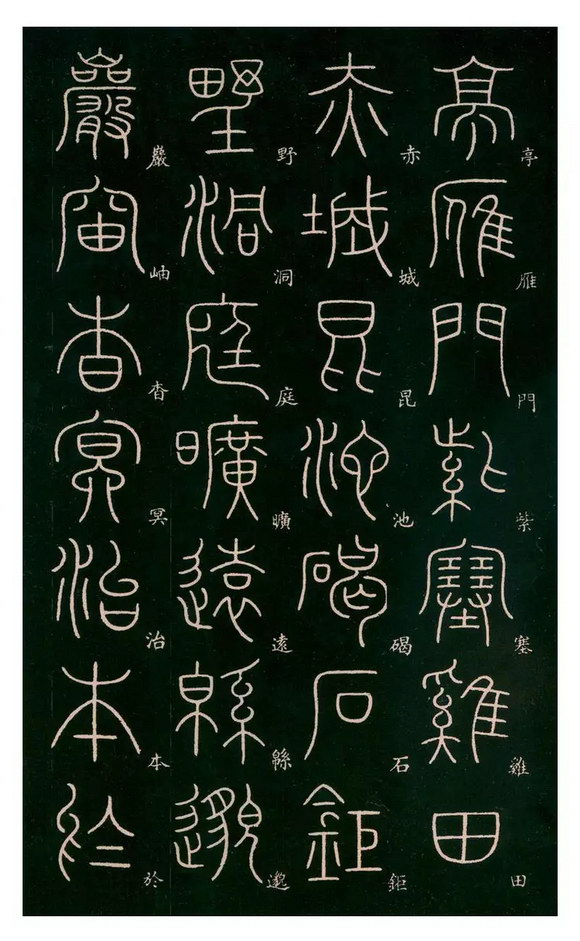 亭雁門紫塞雞田
亭雁門紫塞雞田
赤城昆池碣石鉅
赤城昆池碣石鉅
野洞庭曠遠緜邈
野洞庭曠遠緜邈
巖岫杳冥治本於
巖岫杳冥治本於